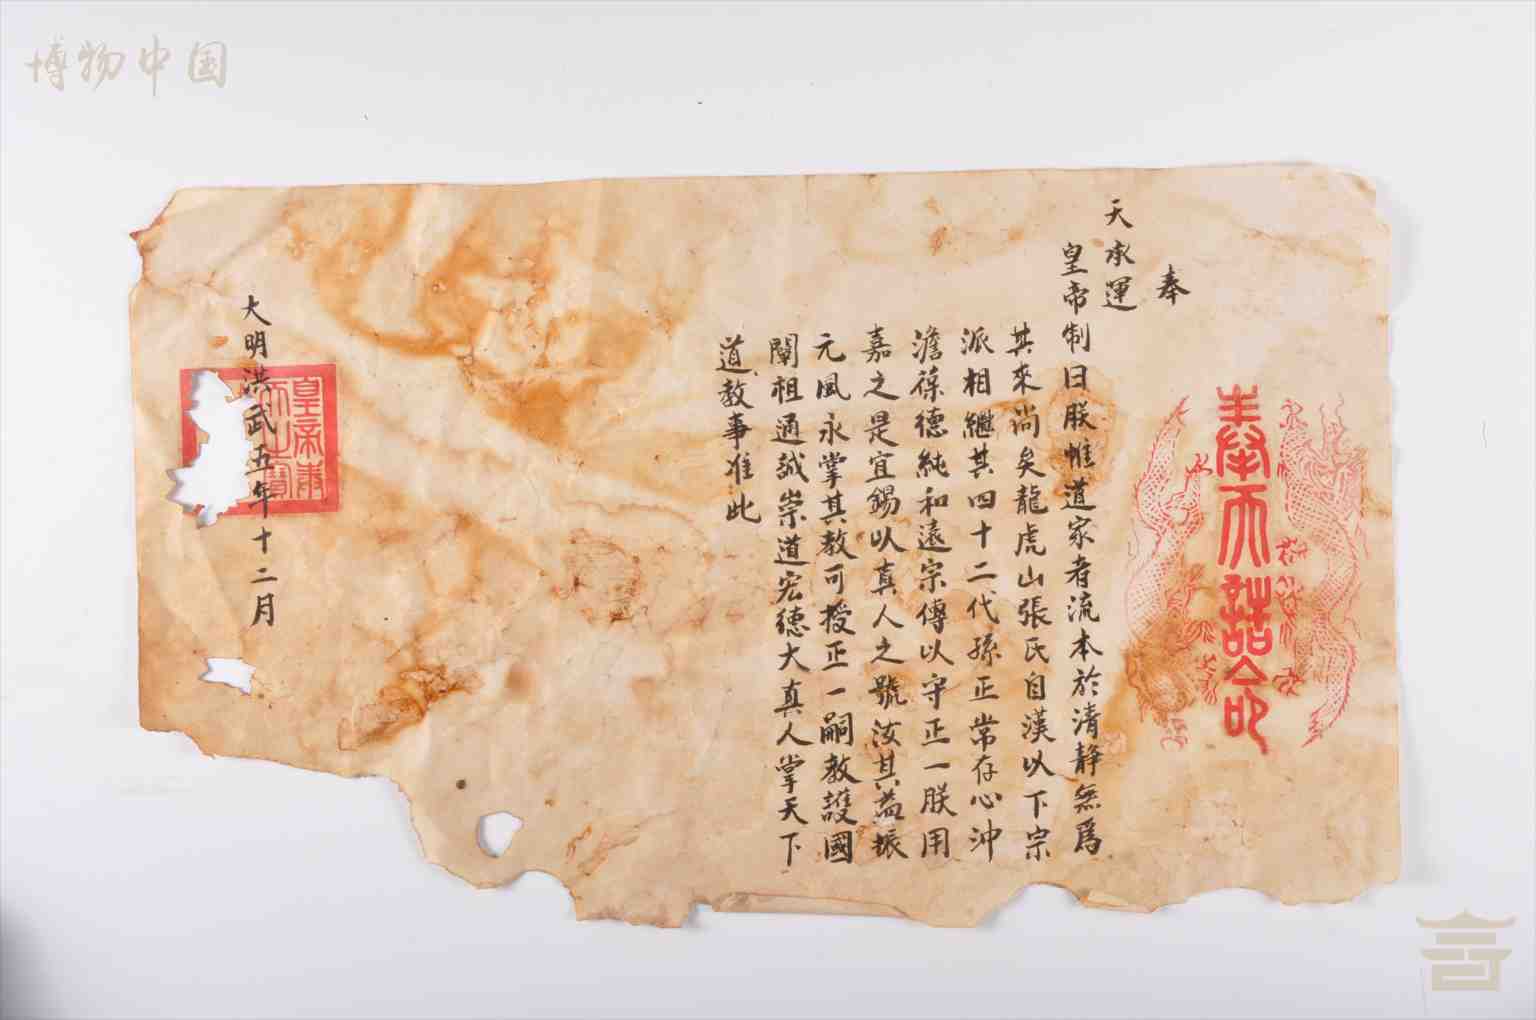 博物中国
奉天誥命
奉
天承運
皇帝制曰朕惟道家者流本於清静無爲
其來尚矣龍虎山張氏自漢以下宗
派相繼其四十二代孫正常存心沖
澹葆德純和遠宗傳以守正一朕用
嘉之是宜錫以真人之號汝其益振
元風永掌其教可授正一嗣教護國
闡祖通誠崇道宏德大真人掌天下
道教事准此
大明洪武五年十二月
皇帝奉
天之寶